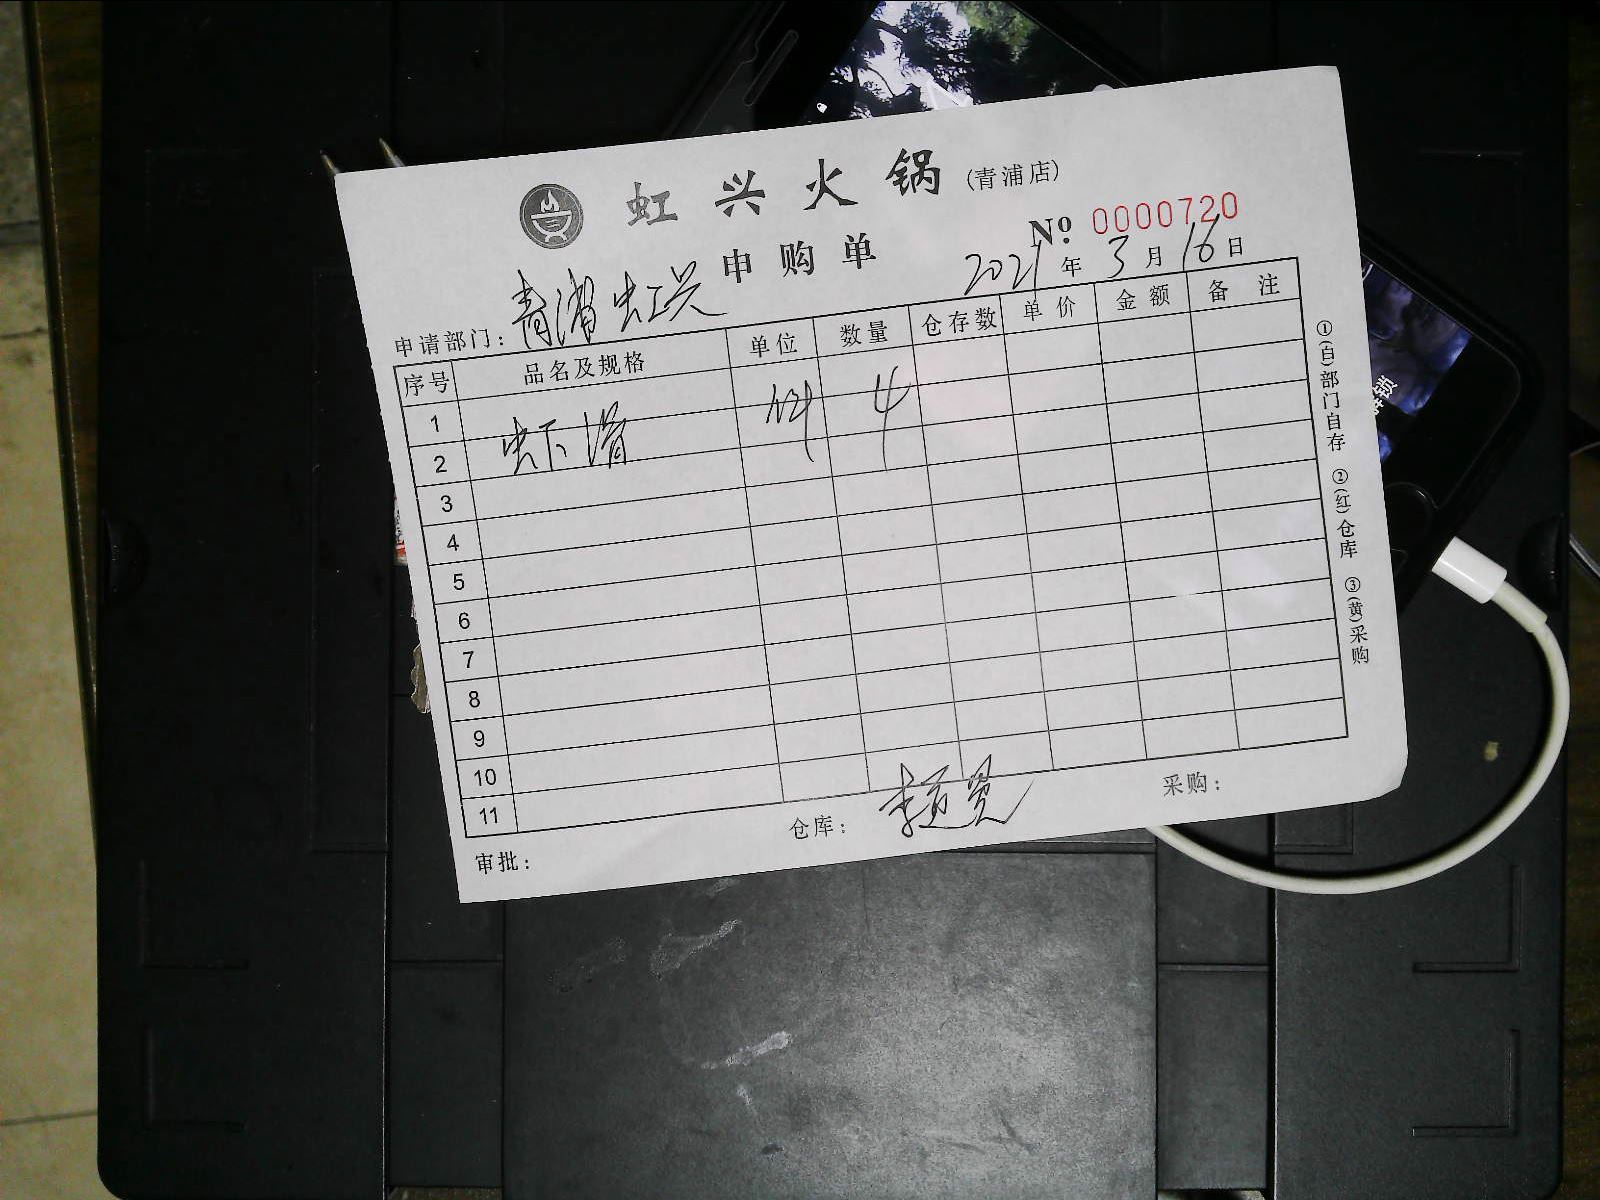 虹兴火锅(青浦店)
Nº 0000720
申购单
2021年3月16日
申请部门：青浦虹兴
序号 品名及规格 单位 数量 仓存数 单价 金额 备注
1
2 虾滑 件 4
3
4
5
6
7
8
9
10
11
审批： 仓库： 采购：
①(白)部门自存 ②(红)仓库 ③(黄)采购